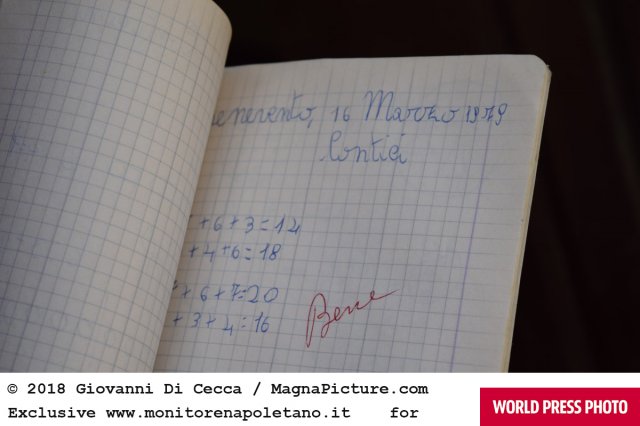 enevento, 16 Marzo 1979
Conticini
+6+3=14
+4+6=18
+6+7=20
+3+4=16
Bene
© 2018 Giovanni Di Cecca / MagnaPicture.com
Exclusive www.monitorenapoletano.it for
WORLD PRESS PHOTO